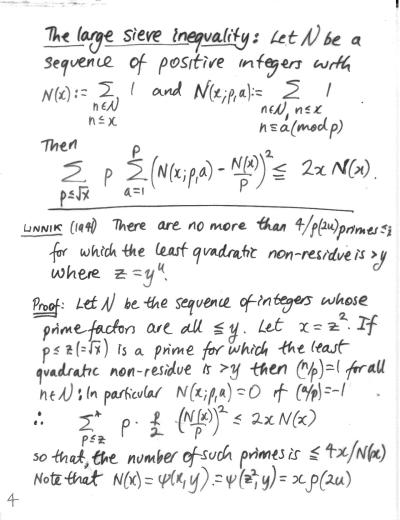 The large sieve inequality: Let N be a
sequence of positive integers with
N(x) := ∑_{n∈N, n≤x} 1 and N(x;p,a) := ∑_{n∈N, n≤x, n≡a(mod p)} 1
Then
∑_{p≤√x} p ∑_{a=1}^{p} (N(x;p,a) - N(x)/p)² ≤ 2x N(x).
LINNIK (1941) There are no more than 4/ρ(2u) primes ≤z
for which the least quadratic non-residue is >y
where z = y^u.
Proof: Let N be the sequence of integers whose
prime factors are all ≤ y. Let x = z². If
p ≤ z (=√x) is a prime for which the least
quadratic non-residue is >y then (n/p)=1 for all
n∈N: In particular N(x;p,a)=0 if (a/p)=-1
∴ ∑*_{p≤z} p · p/2 · (N(x)/p)² ≤ 2x N(x)
so that, the number of such primes is ≤ 4x/N(x)
Note that N(x) = ψ(x,y) = ψ(z²,y) = x ρ(2u)
4